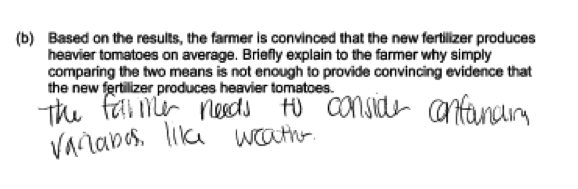 (b) Based on the results, the farmer is convinced that the new fertilizer produces
heavier tomatoes on average. Briefly explain to the farmer why simply
comparing the two means is not enough to provide convincing evidence that
the new fertilizer produces heavier tomatoes.
The farmer needs to consider confounding
variables, like weather.